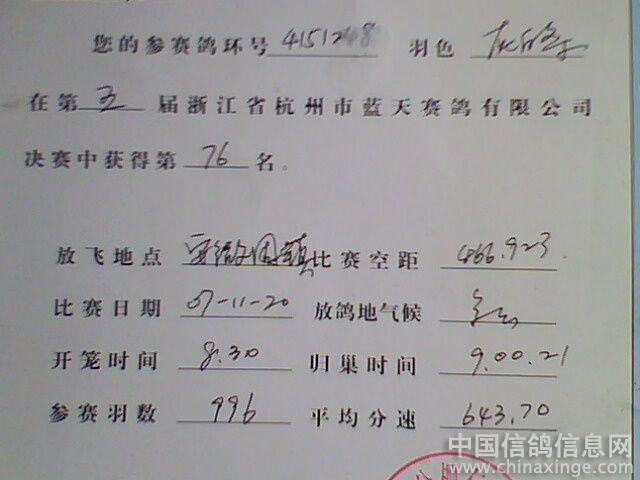 您的参赛鸽环号 4151248 羽色
在第五届浙江省杭州市蓝天赛鸽有限公司
决赛中获得第 76 名。
放飞地点 安徽固镇 比赛空距 466.923
比赛日期 07-11-20 放鸽地气候
开笼时间 8.30 归巢时间 9.00.21
参赛羽数 996 平均分速 643.70
中国信鸽信息网
www.chinaxinge.com